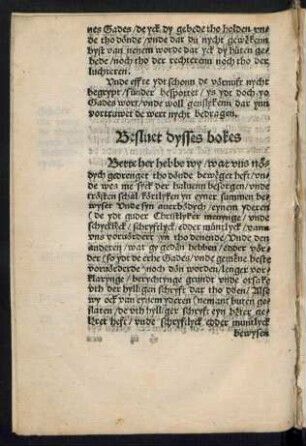 nes Gades / de yck dy gebede tho holden vn-
de tho dönde / vnde dat du nycht gewekenn
byst van nenem worde dat yck dy hüten ge-
bede / noch tho der rechterenn noch tho der
luchteren.
Vnde effte ydt schonn de vörnuft nycht
begrypt / sünder bespottet / ys ydt doch yo
Gades wort / vnde woll gentzlykenn dar ynn
vortruwet de wert nycht bedragen.
Besluet dysses bokes
Bette her hebbe wy / wat vns nö-
dych gedrenget tho dönde beweget heft / vn-
de wes me seck der haluenn besorgen / vnde
trösten schal körtlyken yn eyner summen be-
wyset Vnde syn auerbödych / eynem yderen
de ydt guder Christlyker menynge / vnde
schycklick / schryftlyck / edder müntlyck / vann
vns vorvördert yn tho denende / Vnde den
anderen / wat gy gedän hebben / edder vör-
der / so ydt de erhe Gades / vnde gemene beste
vorvörderde noch dön worden / lenger vor-
klarynge / berychtynge grundt vnde orsake
vth der hylligen schryft dar tho döen / Alse
wy ock van eynem yderen / nemant buten ge-
slaten / de vth hylliger schryft eyn beter ge-
leret heft / vnde schryftlyck edder müntlyck
bewysen